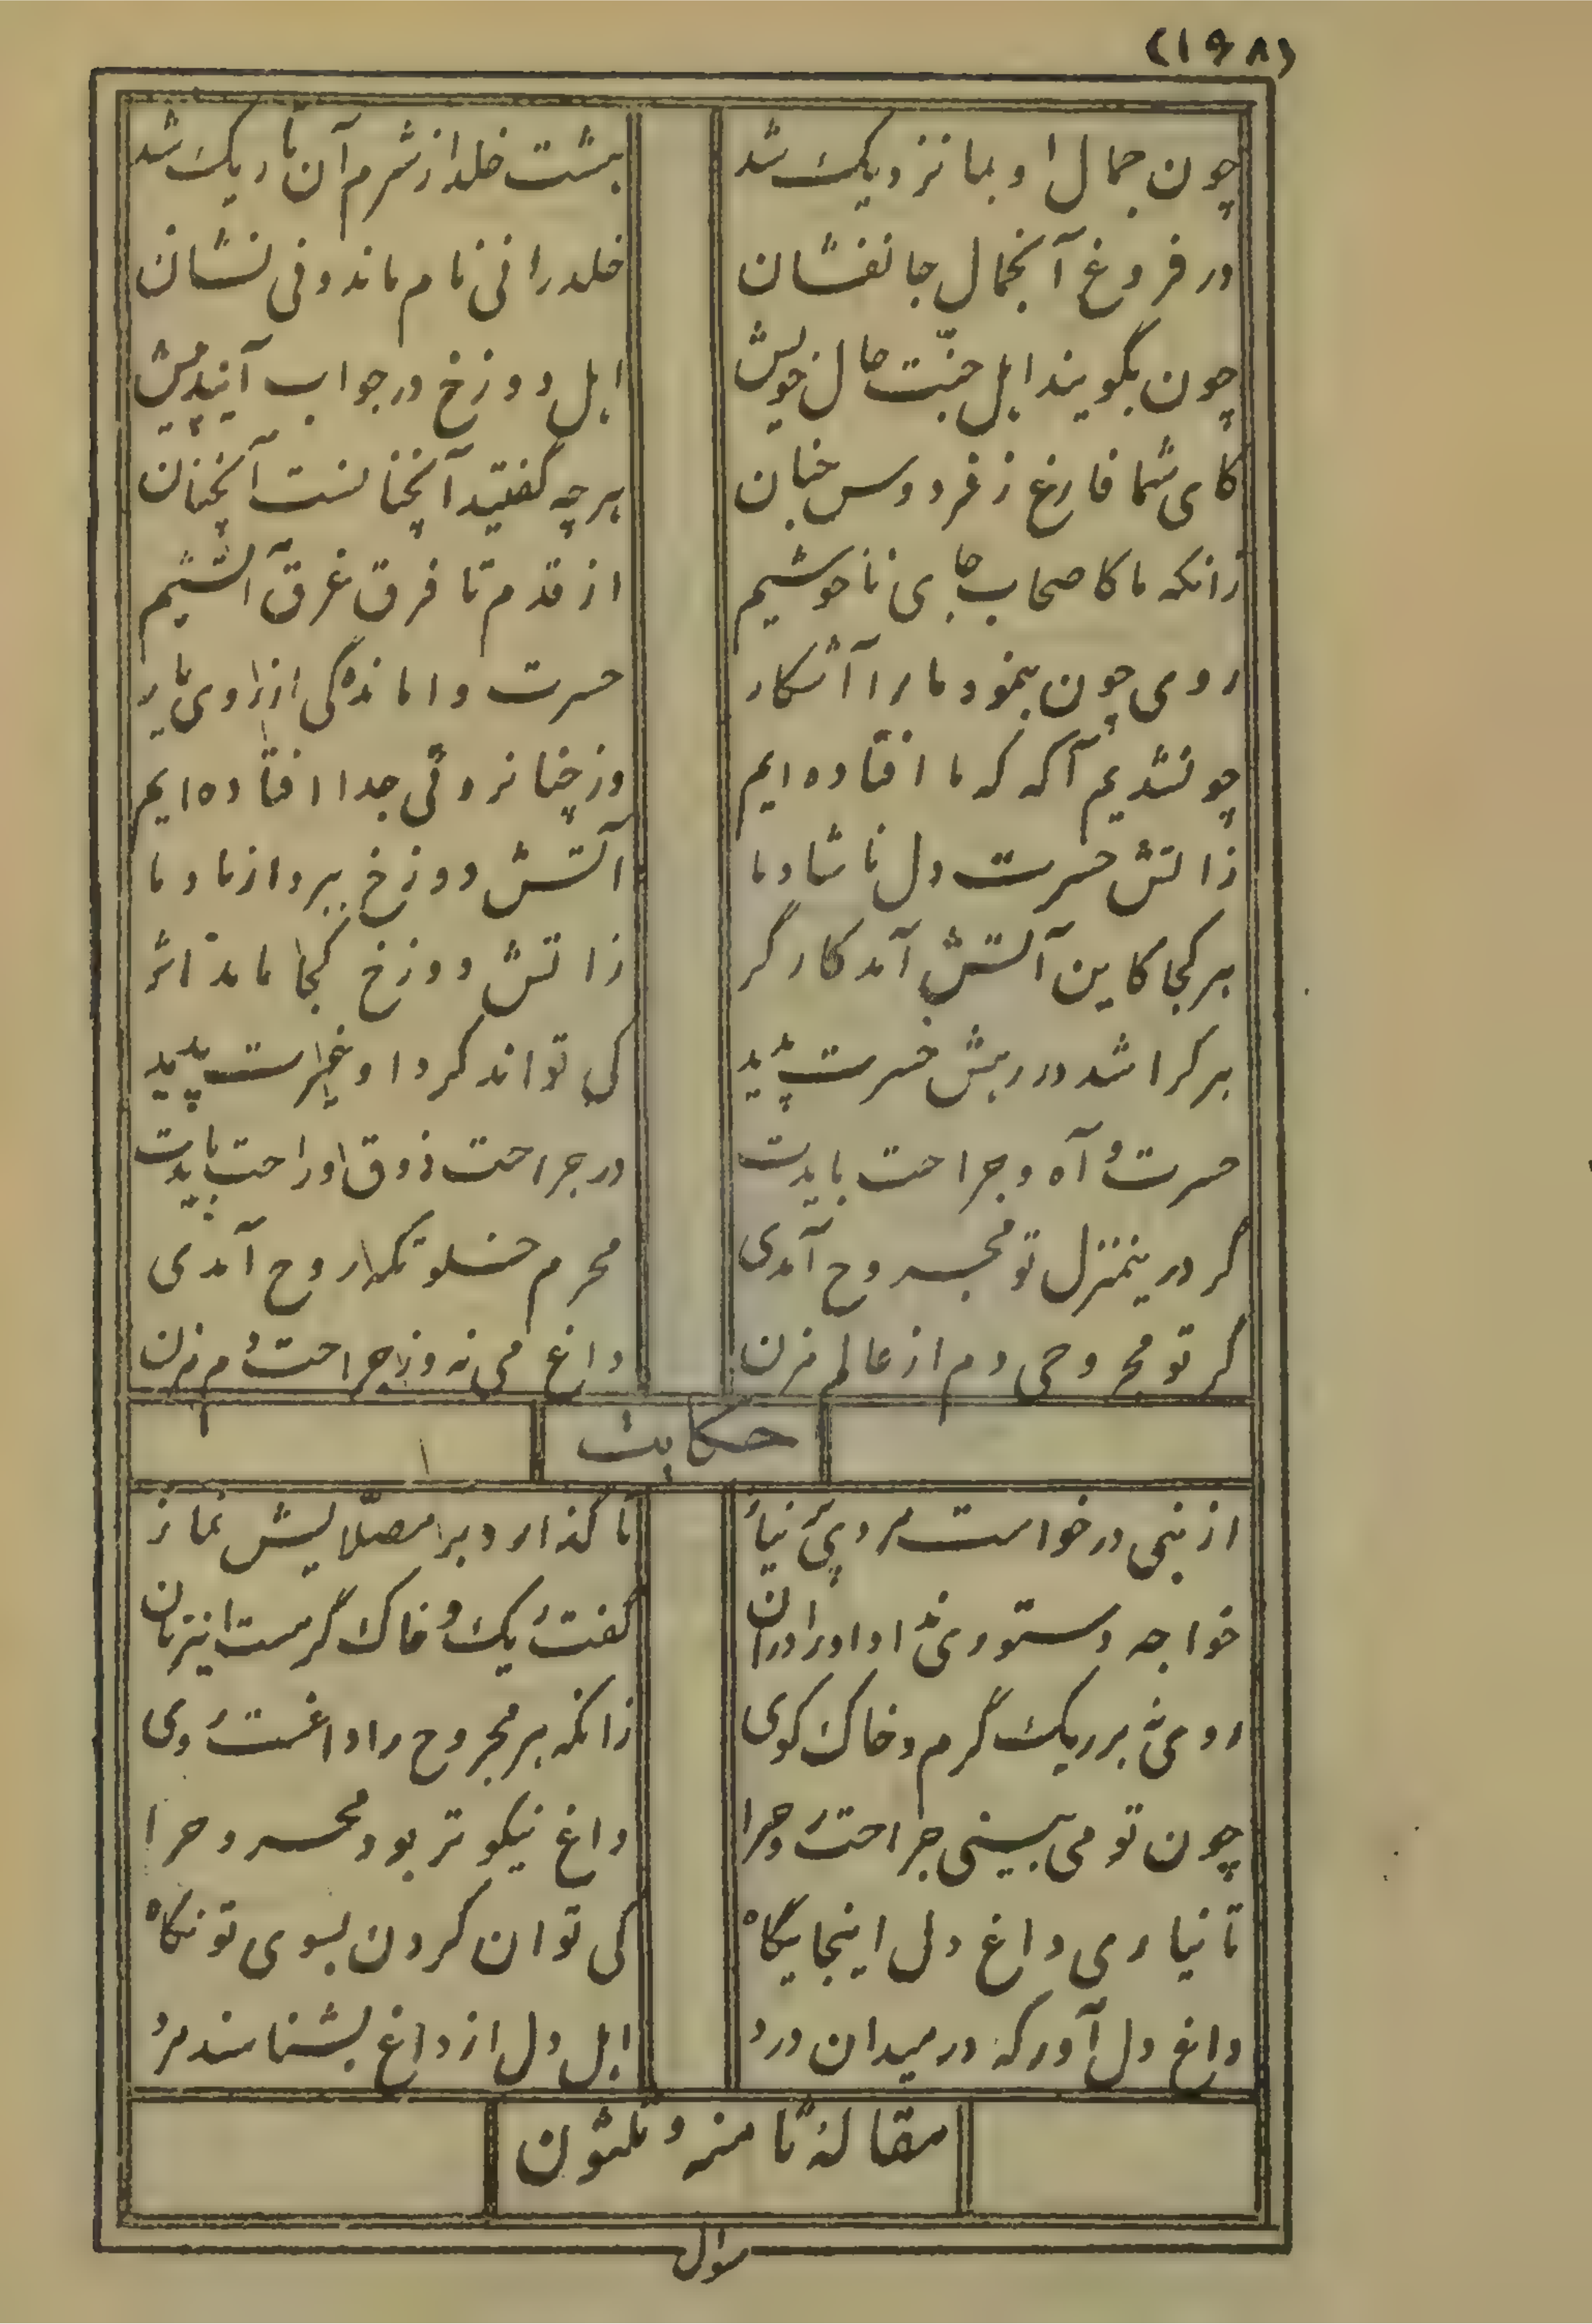 (۱۹۸)
چون جمال او بما نزدیک شد بهشت خلد از شرم آن تاریک شد
در فروغ آنجمال جانفشان خلد را نی نام ماند و نی نشان
چون بگویند اهل جنّت حال خویش اهل دوزخ در جواب آیند پیش
کای شما فارغ ز فردوس جنان هر چه گفتید آنچنانست آنچنان
زانکه ما کاصحاب جای ناخوشیم از قدم تا فرق غرق آتشیم
روی چون بنمود ما را آشکار حسرت واماندگی از روی یار
چونشدیم آگه که ما افتاده‌ایم وز چنان روئی جدا افتاده‌ایم
ز اتش حسرت دل ناشاد ما آتش دوزخ ببرد از یاد ما
هر کجا کاین آتش آمد کارگر ز اتش دوزخ کجا ماند اثر
هر کرا شد در رهش حسرت پدید کی تواند کرد او غیرت پدید
حسرت و آه و جراحت بایدت در جراحت ذوق و راحت بایدت
گر درینمنزل تو مجروح آمدی محرم خلوتگه روح آمدی
گر تو مجروحی دم از عالم مزن داغ می نه وز جراحت دم مزن
حکایت
از نبی درخواست مردی پر نیاز تا گذارد بر مصلّایش نماز
خواجه دستوری نداد او را در آن گفت ریگ و خاک گرمست این زمان
روی نه بر ریگ گرم و خاک کوی زانکه هر مجروح را داغست روی
چون تو می‌بینی جراحت روح را داغ نیکوتر بود مجروح را
تا نیاری داغ دل اینجایگاه کی توان کردن بسوی تو نگاه
داغ دل آور که در میدان درد اهل دل از داغ بشناسند مرد
مقالهٔ ثامنه و ثلثون
سوال